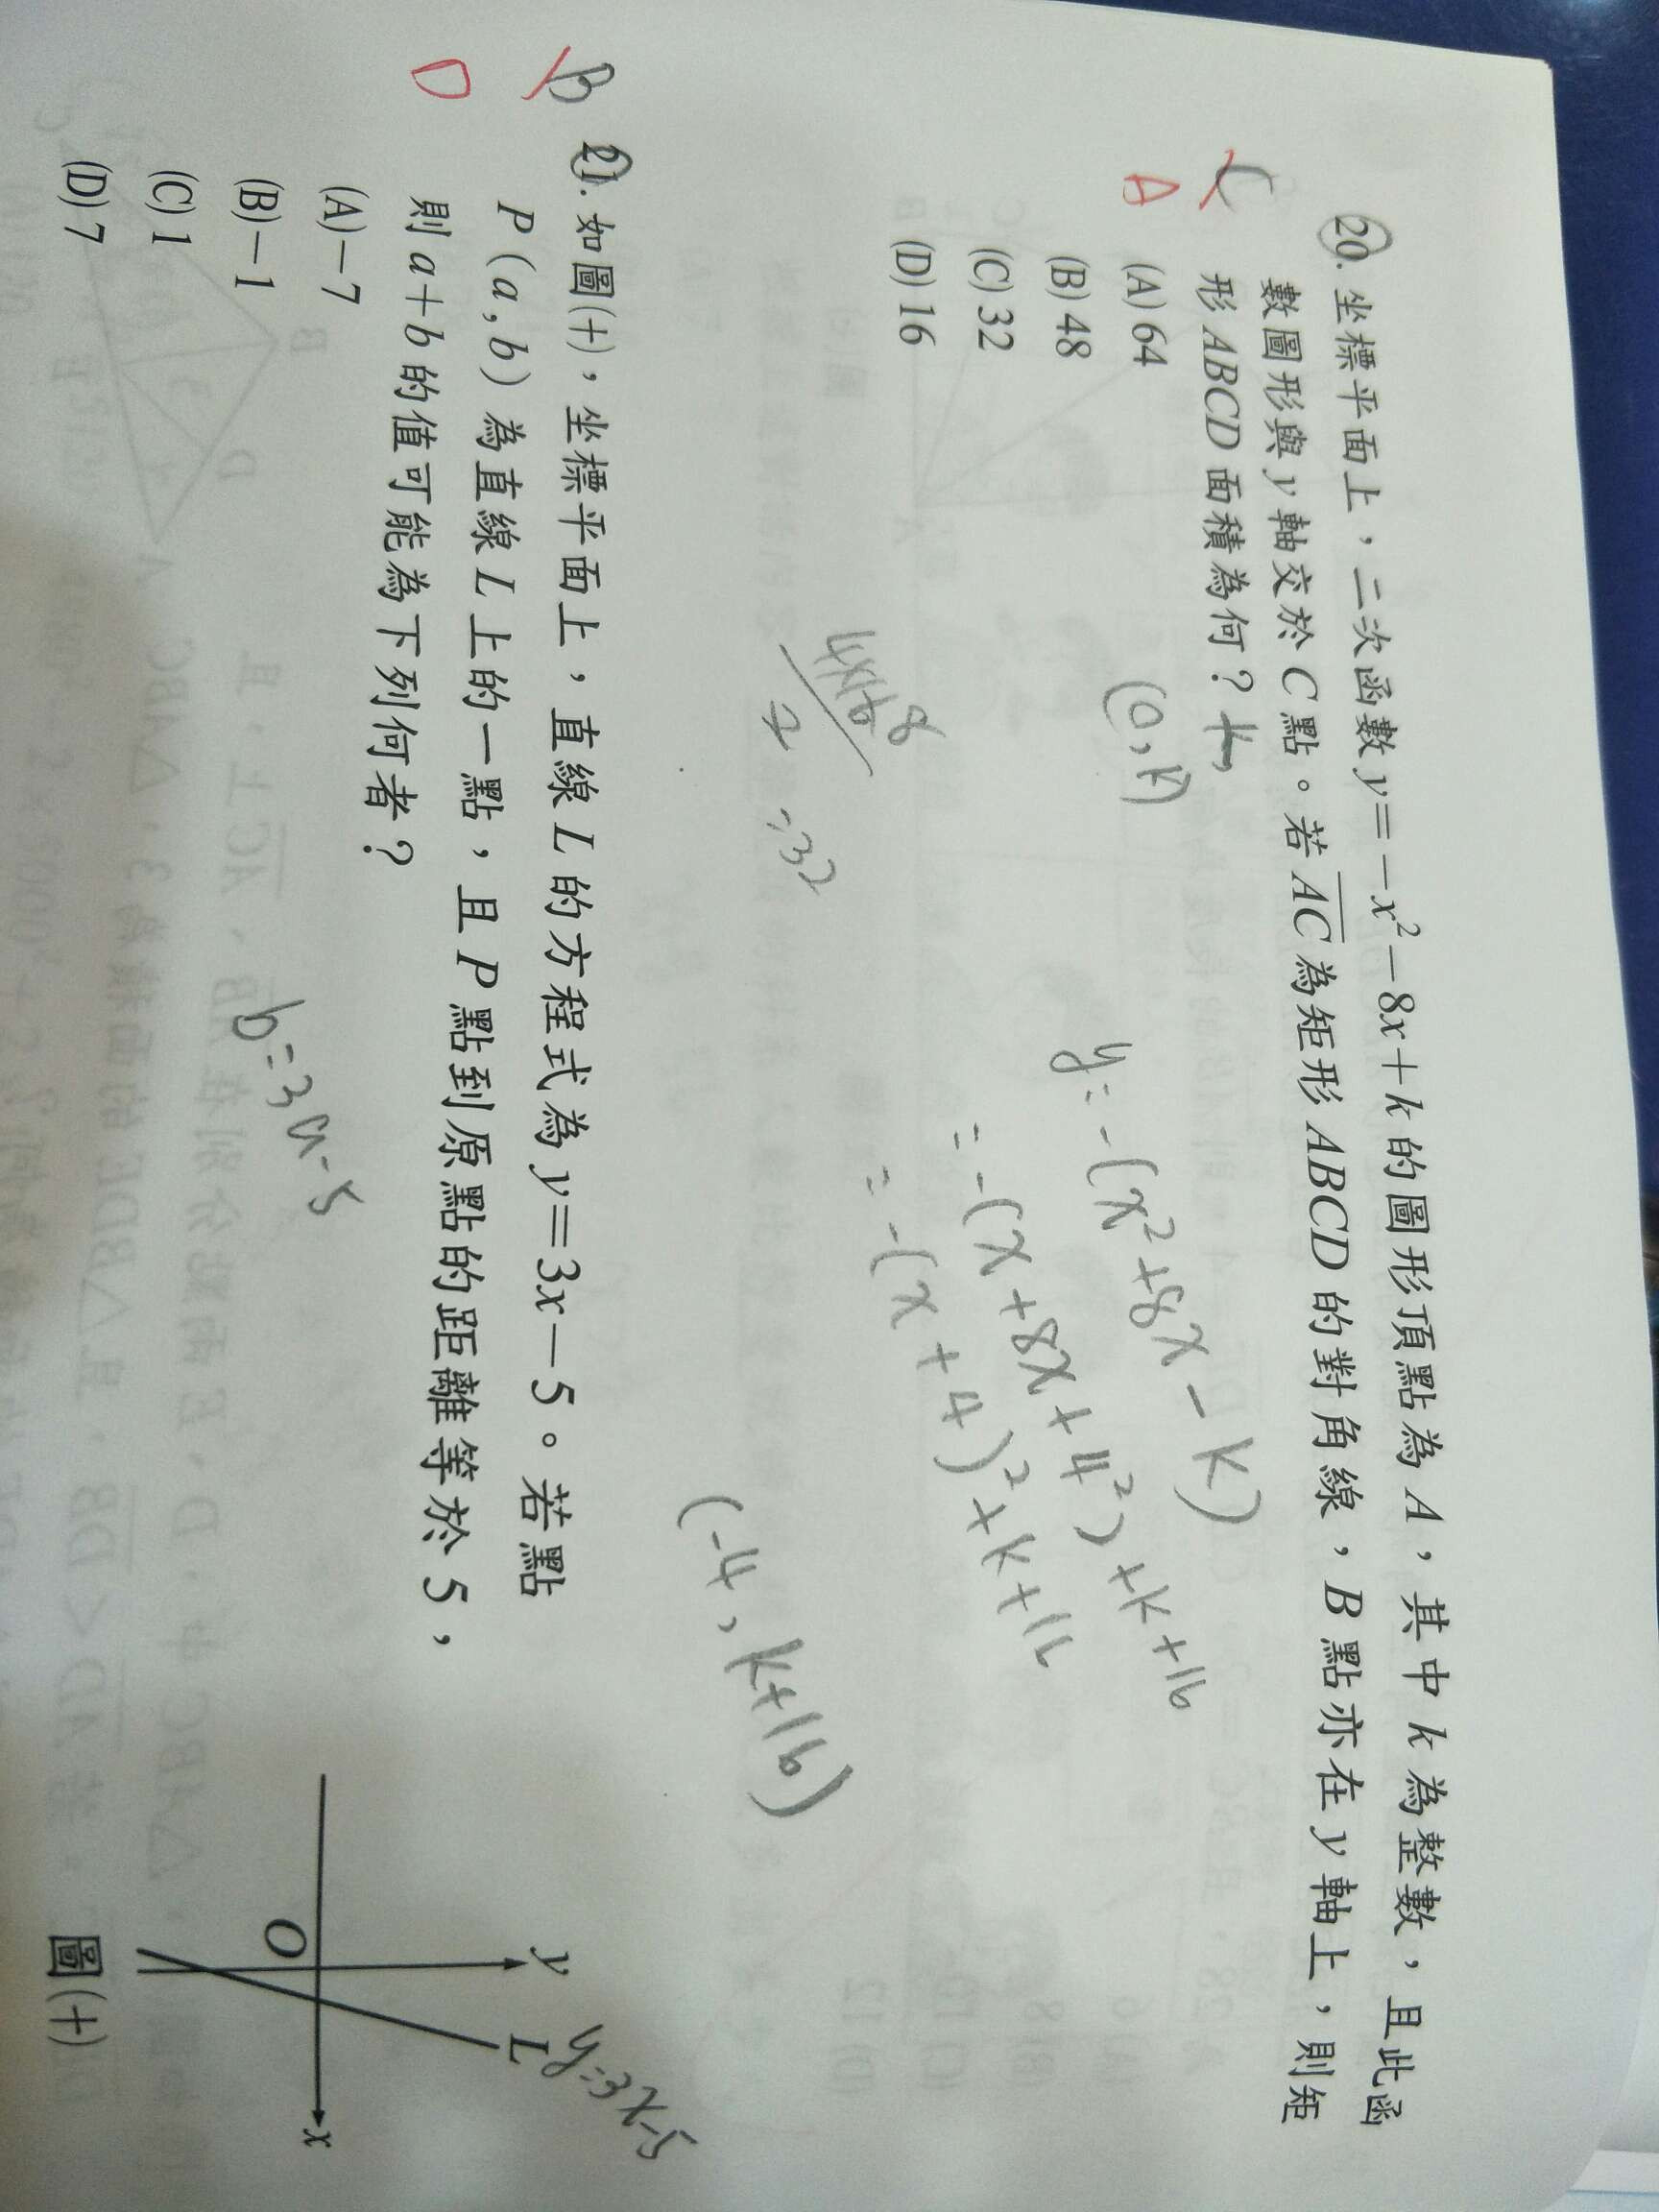 C
A
20. 坐標平面上，二次函數 y=-x²-8x+k 的圖形頂點為 A，其中 k 為整數，且此函
數圖形與 y 軸交於 C 點。若 AC 為矩形 ABCD 的對角線，B 點亦在 y 軸上，則矩
形 ABCD 面積為何？
(A) 64
(B) 48
(C) 32
(D) 16
(0, k)
y=-(x²+8x-k)
=-(x+8x+4²)+k+16
=-(x+4)²+k+16
(-4, k+16)
=32
B
D
21. 如圖(十)，坐標平面上，直線 L 的方程式為 y=3x-5。若點
P(a,b) 為直線 L 上的一點，且 P 點到原點的距離等於 5，
則 a+b 的值可能為下列何者？
(A) -7
(B) -1
(C) 1
(D) 7
b=3a-5
y
L
y=3x-5
O
x
圖(十)